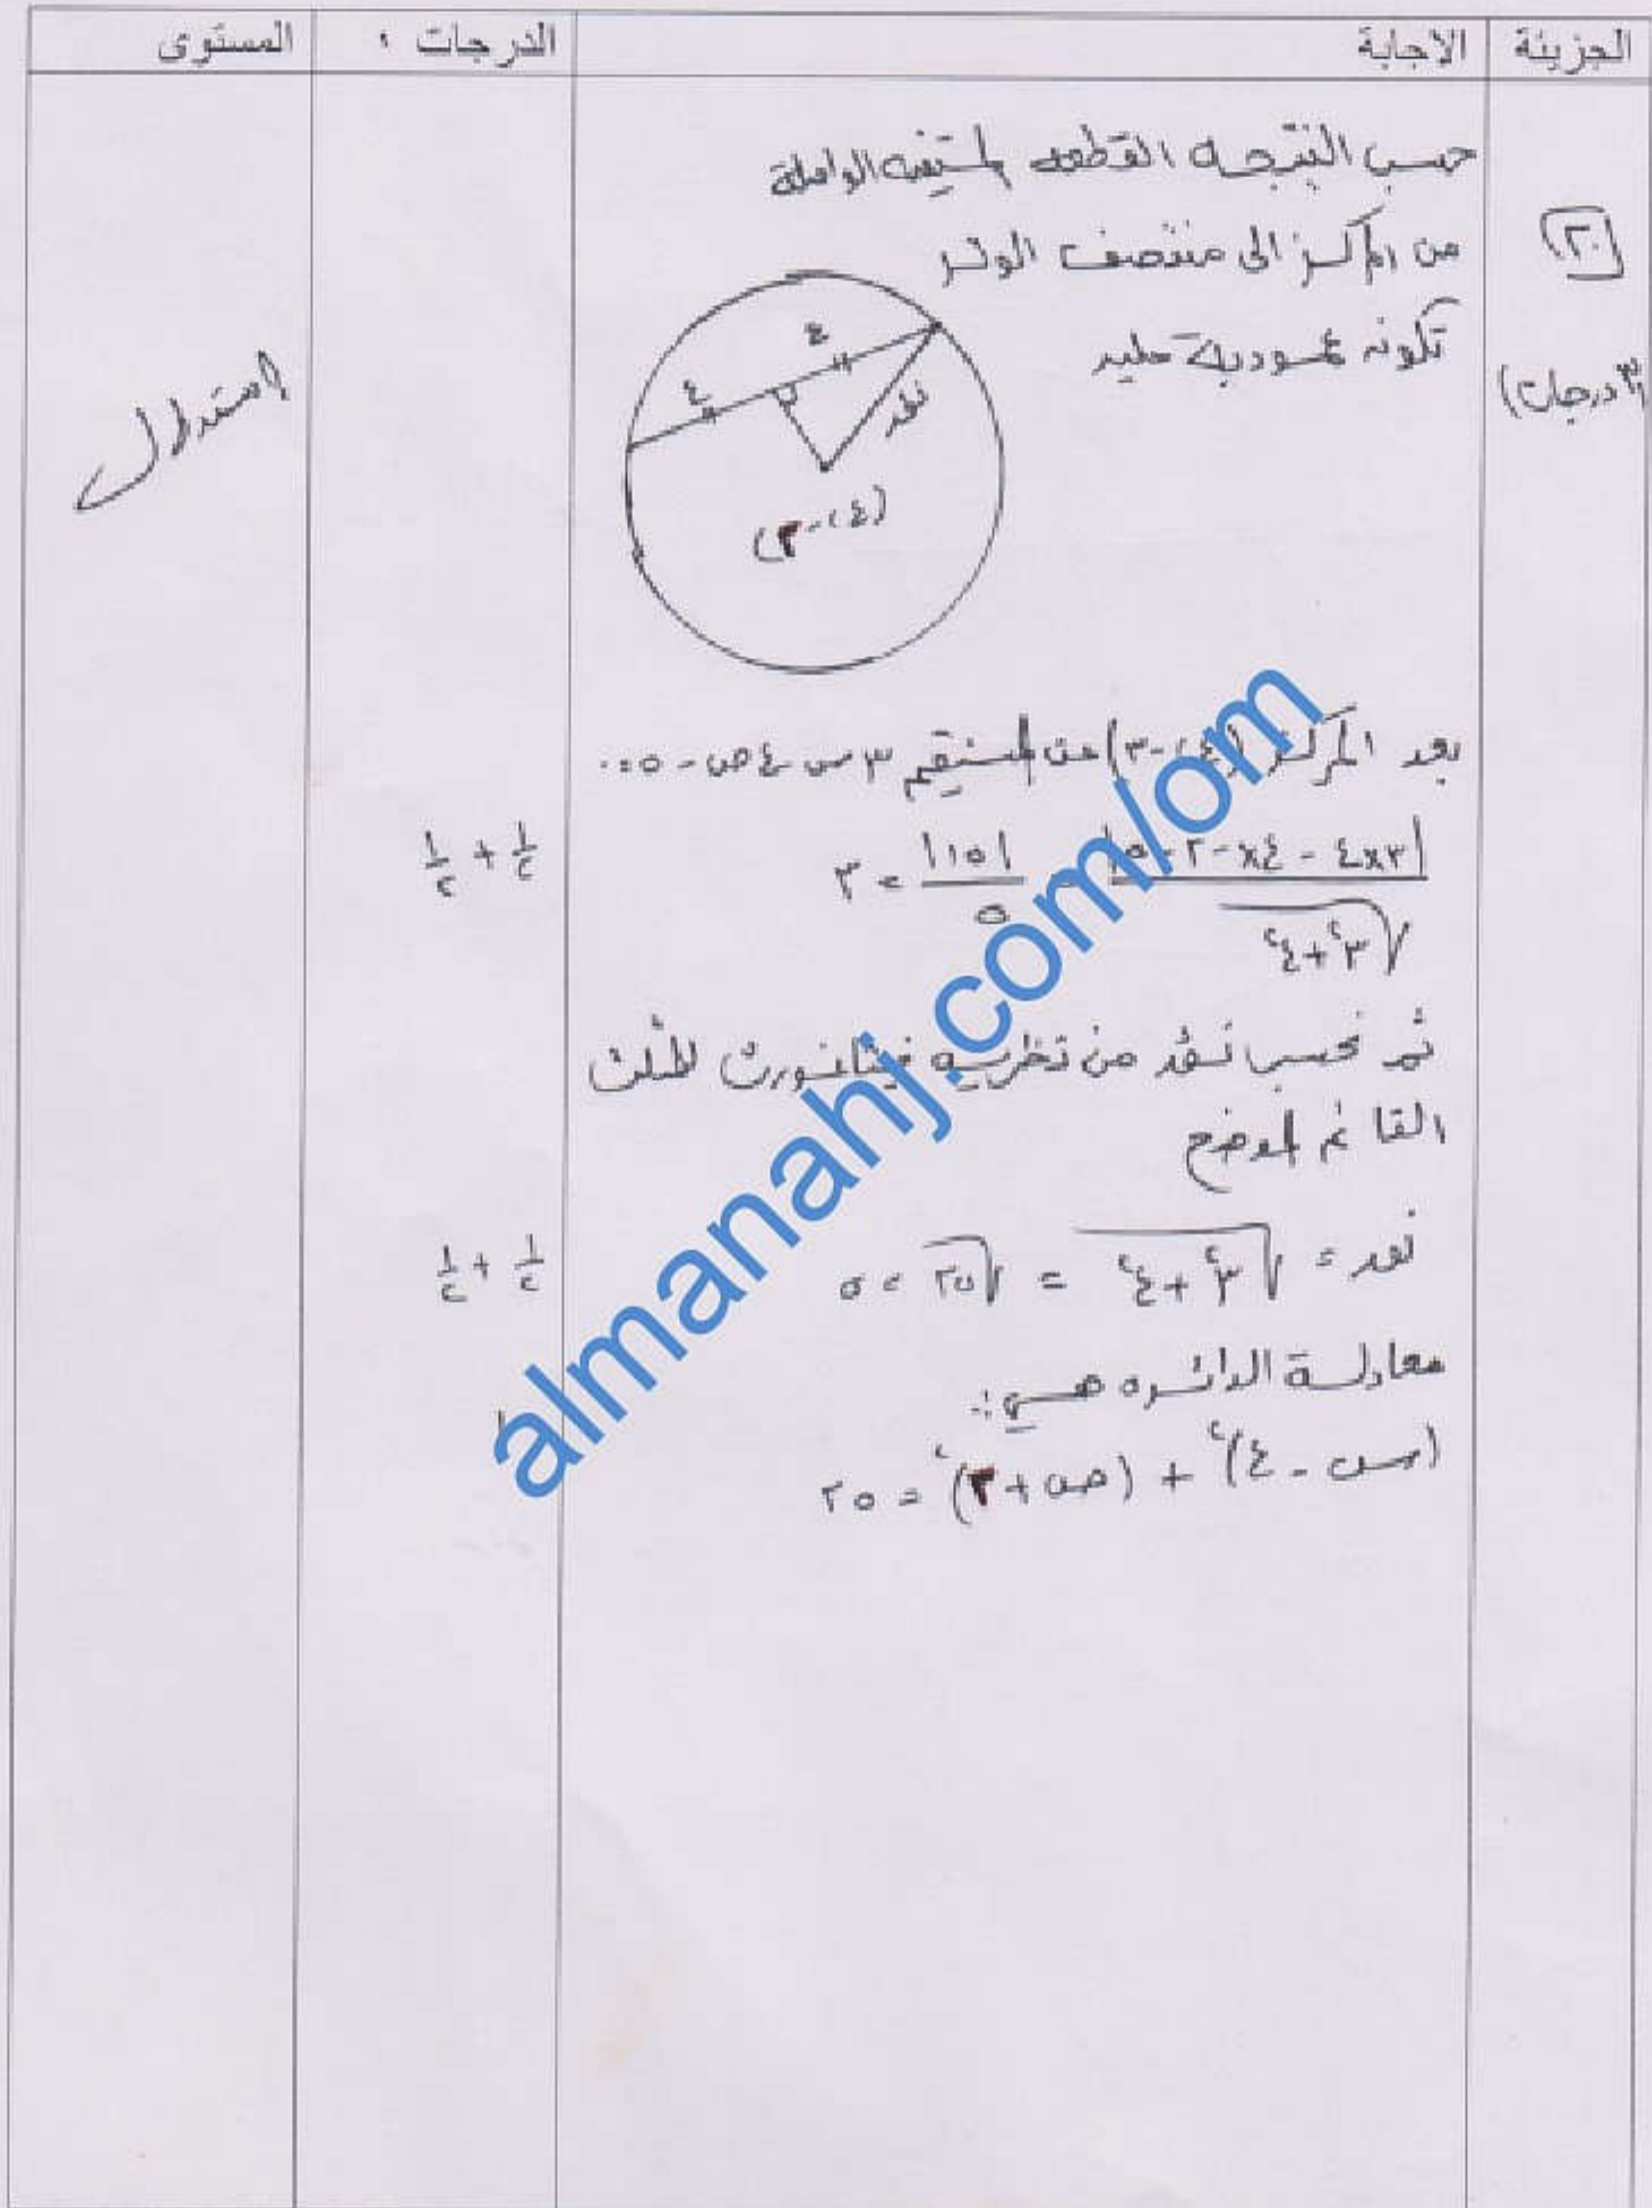 الجزيئة الاجابة الدرجات المستوى
٢٠
(٣ درجات)
حسب النتيجة القطعه المستقيمه الواصلة
من المركز الى منتصف الوتر
تكونه عمودية عليه
استدلال
٤
٤
نقد
(٤، -٢)
بعد المركز (٤، -٣) عن المستقيم ٣س - ٤ص - ٥ = ٠
|٣×٤ - ٤×-٢ - ٥| / √(٣² + ٤²) = |١٥| / ٥ = ٣
½ + ½
ثم نحسب نقد من نظريه فيثاغورث للمثلث
القائم الموضح
نقد = √(٣² + ٤²) = √٢٥ = ٥
½ + ½
معادلة الدائره هي :-
١
(س - ٤)² + (ص + ٢)² = ٢٥
almanahj.com/om